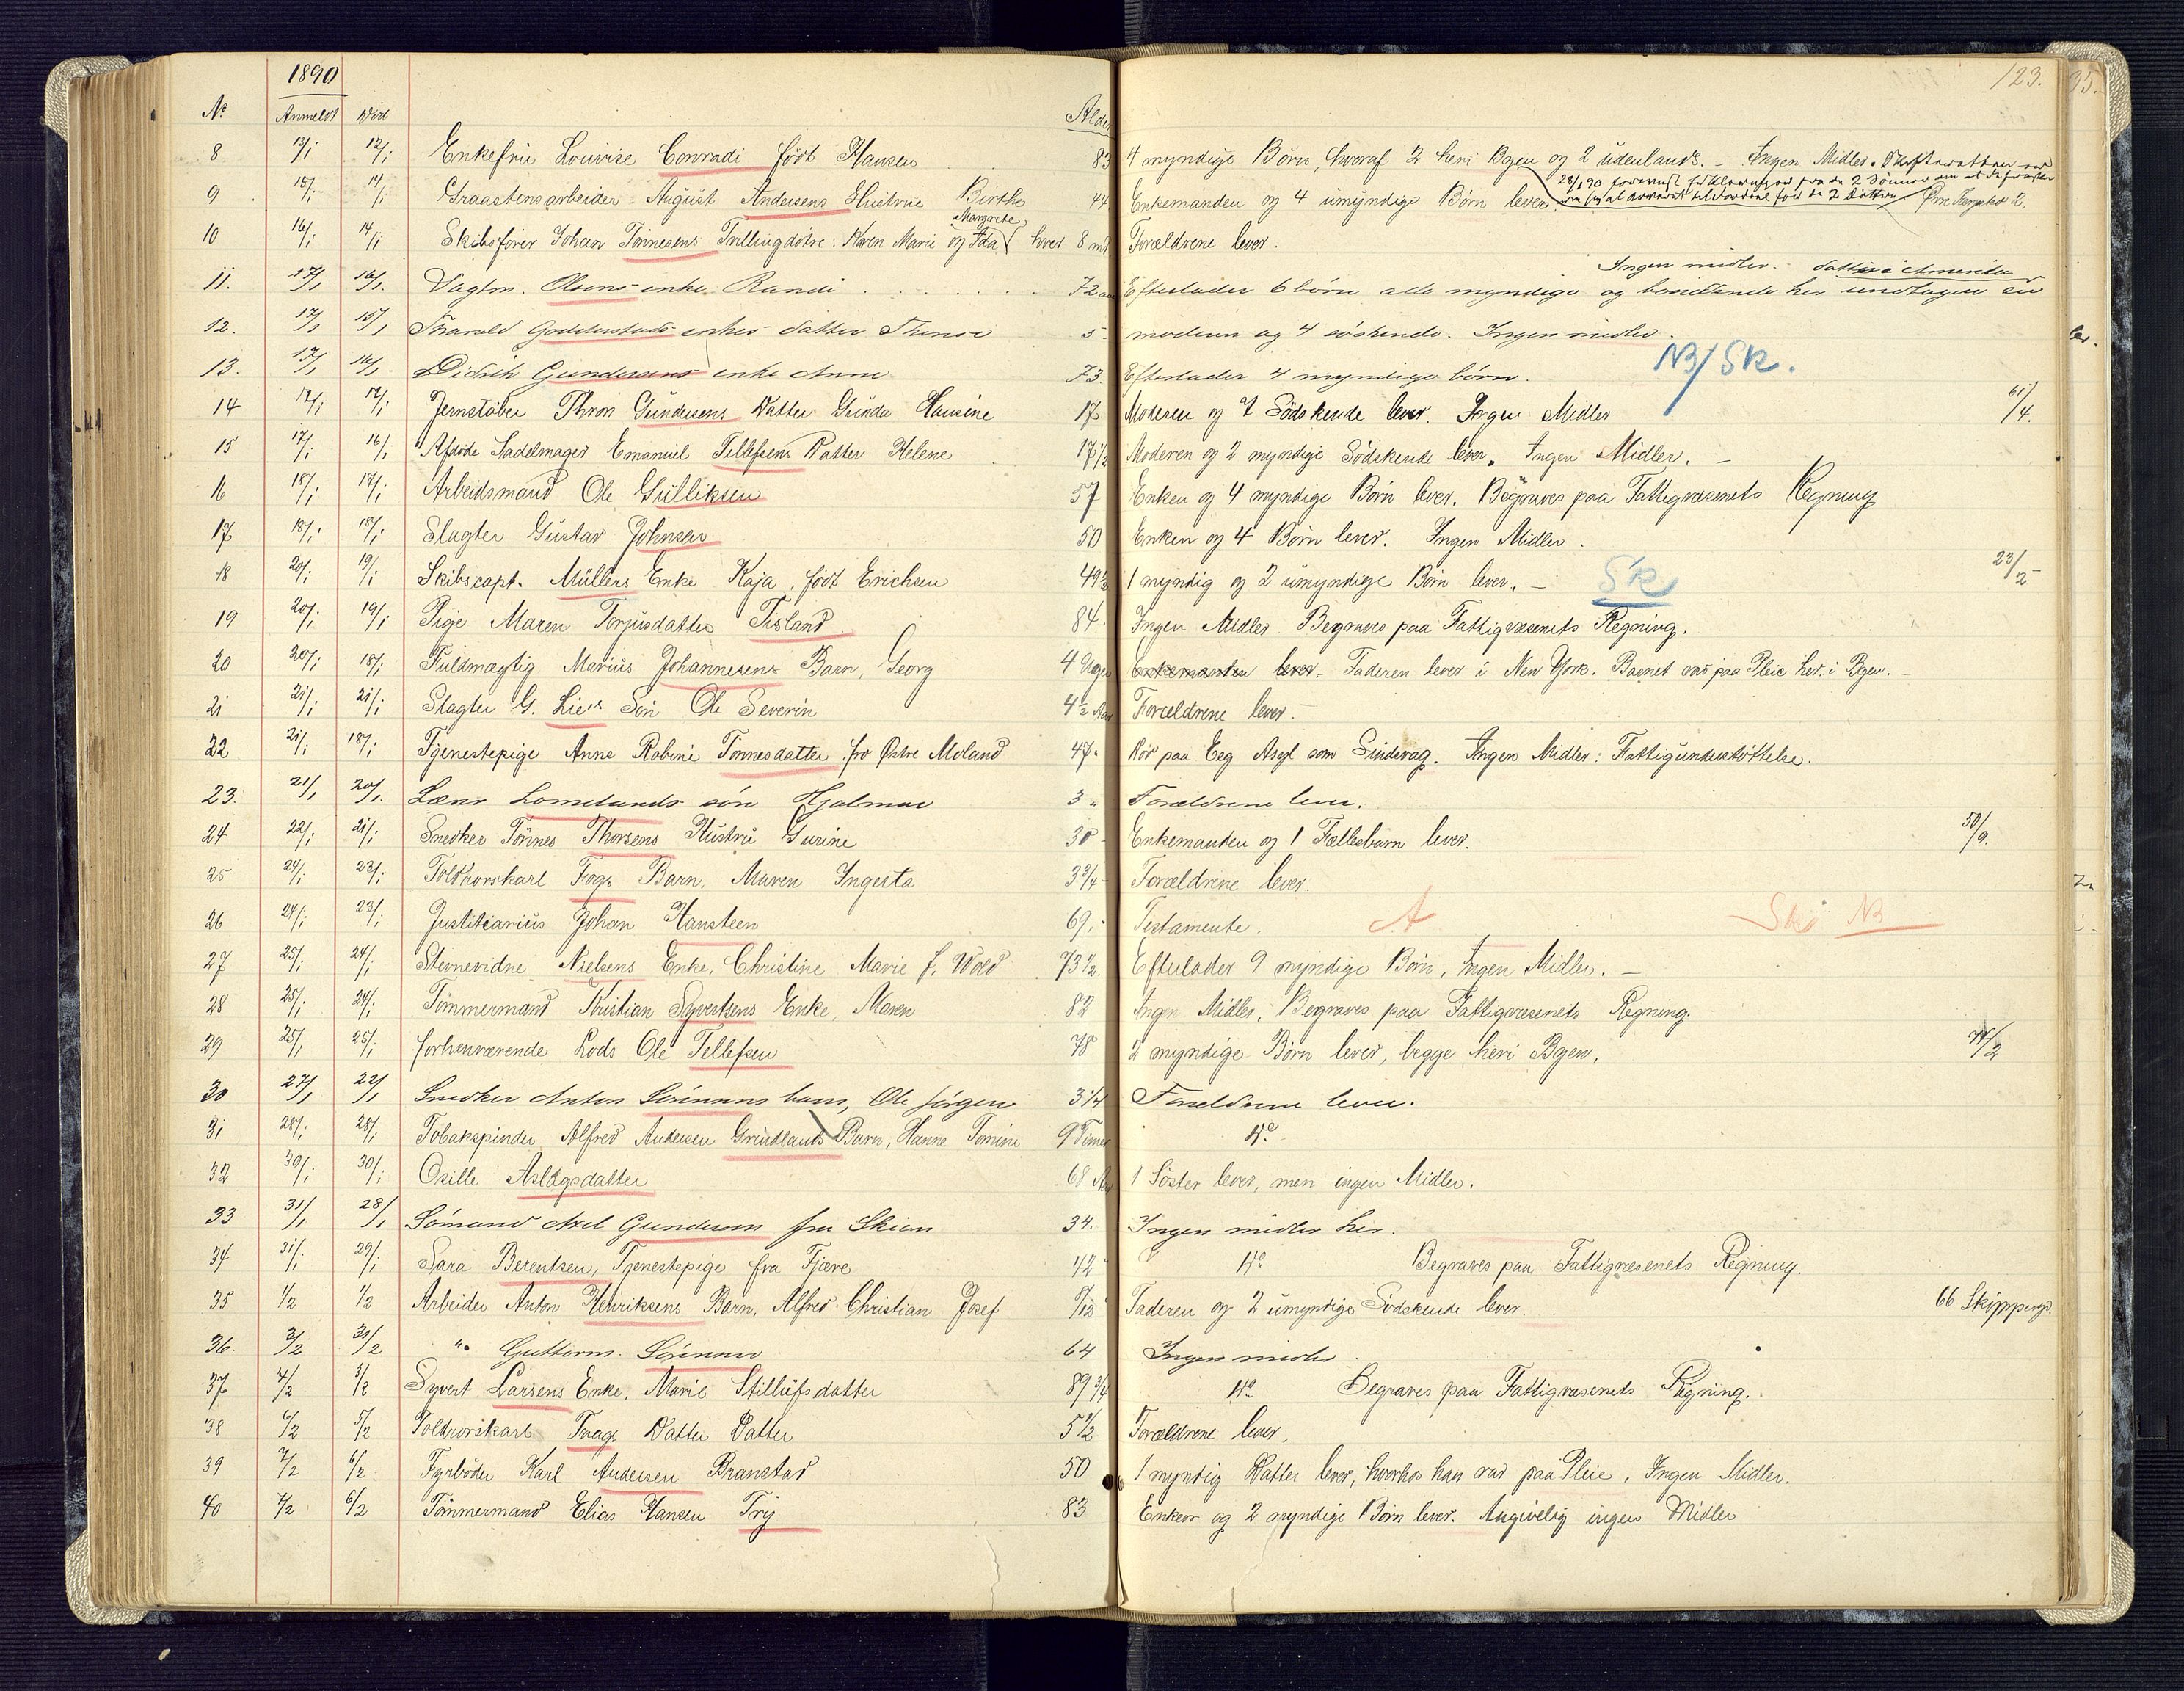 1890
123.
No Anmeldt Död Alder
8 13/1 12/1 Enkefru Louvise Conradi født Hansen 83 4 myndige Børn, hvoraf 2 heri Byen og 2 udenlands. – Ingen Midler.
28/1 90
9 15/1 14/1 Graastensarbeider August Andersens Hustrue Birthe 44 Enkemanden og 4 umyndige Børn lever.
Margrete
10 16/1 14/1 Skibsfører Johan Tönnesens Trillingdøtre: Karen Marie og Ida hver 8 md Forældrene lever.
Ingen midler. datter i Amerika
11. 17/1 16/1 Vagtm. Olsens enke Randi 72 aar Efterlader 6 börn alle myndige og boesiddende her undtagen en
12. 17/1 15/1 Tharald Godderstads enkes datter Thense 5 moderen og 4 söskende. Ingen midler.
NB/ SK.
13. 17/1 16/1 Didrik Gundersens enke Anne 73. Efterlader 4 myndige börn.
14 17/1 17/1 Jernstøber Thron Gundersens Datter Gunda Hansine 17 Moderen og 7 Södskende lever. Ingen Midler 61/4.
15 17/1 16/1 Afdøde Sadelmager Emanuel Tellefsens Datter Helene 17 1/2 Moderen og 2 myndige Södskende lever. Ingen Midler. –
16 18/1 17/1 Arbeidsmand Ole Gulliksen 57 Enken og 4 myndige Børn lever. Begraves paa Fattigvæsenets Regning
17 18/1 18/1 Slagter Gustav Johnsen 50 Enken og 4 Børn lever. Ingen Midler.
18 20/1 19/1 Skibscapt. Müllers Enke Kaja, født Erichsen 49 1/2 1 myndig og 2 umyndige Børn lever. – SK 23/2
19 20/1 19/1 Pige Maren Torjusdatter Tisland 84. Ingen Midler. Begraves paa Fattigvæsenets Regning.
20 20/1 18/1 Fuldmægtig Marius Johannesens Barn, Georg 4 Dage Enkemanden lever. Faderen lever i New York. Barnet var paa Pleie her i Byen. –
21 21/1 21/1 Slagter G. Lies Søn Ole Severin 4 1/2 Aar Forældrene lever. –
22 21/1 18/1 Tjenestepige Anne Robine Tönnesdatter fra Østre Moland 47. Var paa Eeg Asyl som Sindsvag. Ingen Midler: Fattigunderstøttelse.
23. 21/1 20/1. Lomelands sön Hjalmar 3 Forældrene lever.
24 22/1 21/1 Snedker Tönnes Thorsens Hustru Gurine 30 Enkemanden og 1 Fællesbarn lever. 50/9.
25 24/1 23/1 Toldrorskarl Fogs Barn, Maren Ingerta 3 3/4 Forældrene lever.
26 24/1 23/1 Justitiarius Johan Hansteen 69. Testamente. A Sk NB
27 25/1 24/1 Stevnevidne Nielsens Enke, Christine Marie f. Wold 73 1/2. Efterlader 9 myndige Børn, Ingen Midler. –
28 25/1 24/1 Tömmermand Kristian Syvertsens Enke, Maren 82 Ingen Midler, Begraves paa Fattigvæsenets Regning.
29 25/1 25/1 forhenværende Lods Ole Tellefsen 78 2 myndige Børn lever, begge heri Byen. 74/2
30 27/1 22/1 Snedker Anton Sörensens barn, Ole Jörgen 3 1/4 Forældrene lever.
31 28/1 28/1 Tobakspinder Alfred Andersen Grundlands Barn, Hanne Tomine 9 Timer Do
32 30/1 30/1 Osille Aslagsdatter 68 Aar 1 Søster lever, men ingen Midler.
33 31/1 28/1 Sömand Axel Gundersen fra Skien 34. Ingen midler her.
34 31/1 29/1 Sara Berentsen, Tjenestepige fra Fjære 42 Do Begraves paa Fattigvæsenets Regning.
35 1/2 1/2 Arbeider Anton Henriksens Barn, Alfred Christian Josef 7/12 Faderen og 2 umyndige Södskende lever. 66 Skippergd.
36. 3/2 31/2 " Guttorm Sörensen 64 Ingen midler.
37 4/2 3/2 Syvert Larsens Enke, Marie Stillufsdatter 89 3/4 Do Begraves paa Fattigvæsenets Regning.
38 6/2 5/2 Toldrorskarl Faags Datter Datter 5 1/2 Forældrene lever.
39 7/2 6/2 Fyrbøder Karl Andersen Branstad 50 1 myndig Datter lever, hvorhos han var paa Pleie. Ingen Midler.
40 7/2 6/2 Tömmermand Elias Hansen Try 83 Enken og 2 myndige Børn lever. Angivelig ingen Midler